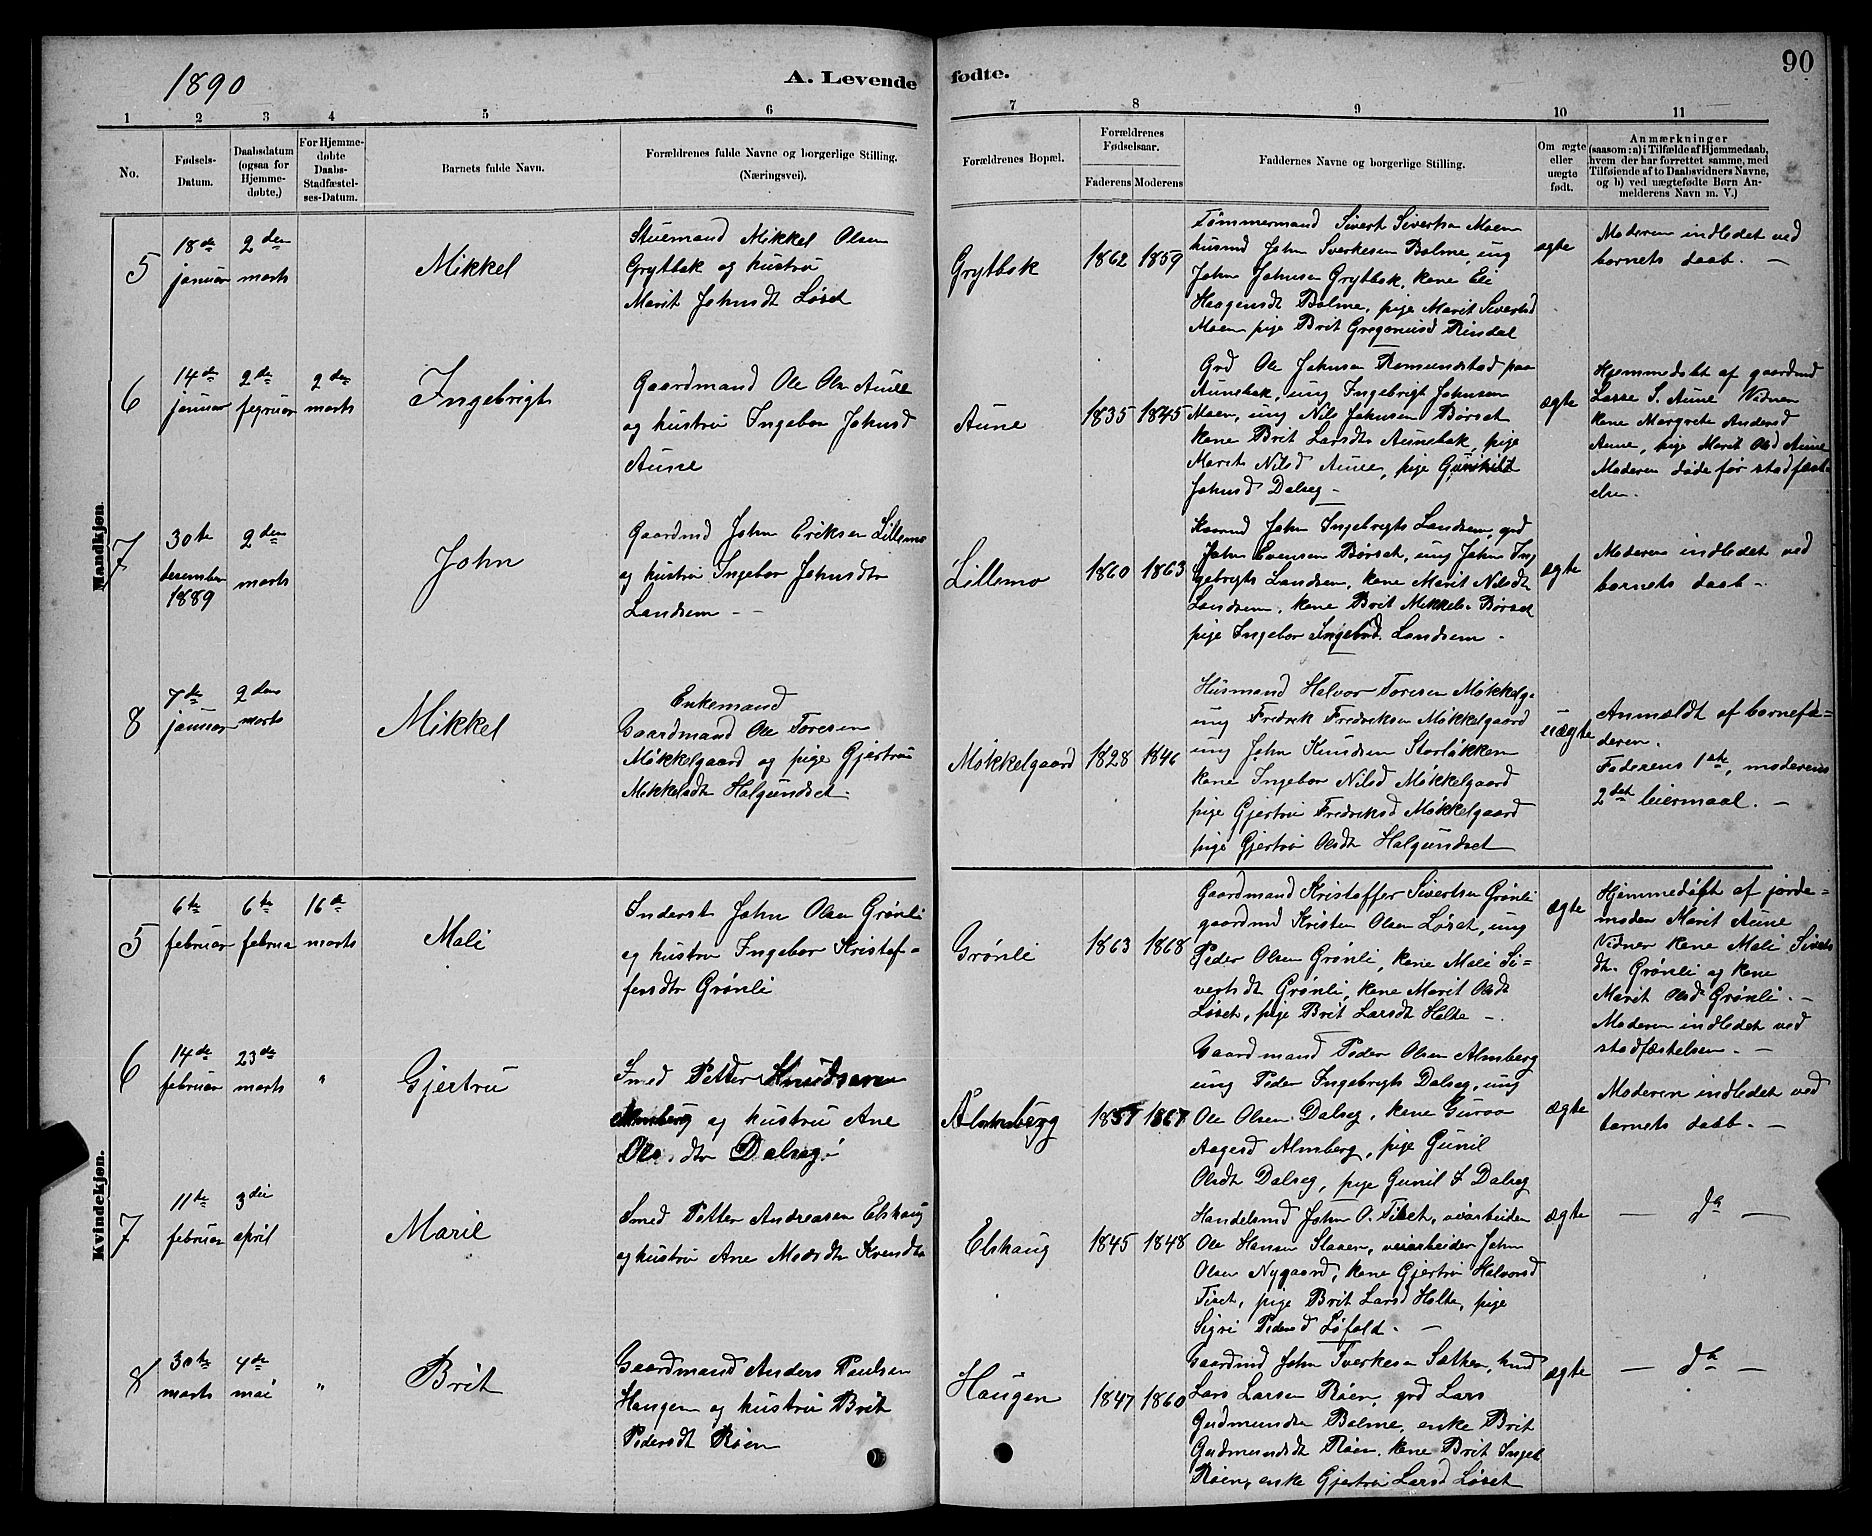 1890
A. Levende
fødte.
90
1 2 3 4 5 6 7 8 9 10 11
No.
Fødsels-
Datum.
Daabsdatum
(ogsaa for
Hjemme-
døbte.)
For Hjemme-
døbte
Daabs-
Stadfæstel-
ses-Datum.
Barnets fulde Navn.
Forældrenes fulde Navne og borgerlige Stilling.
(Næringsvei).
Forældrenes Bopæl.
Forældrenes
Fødselsaar.
Faderens Moderens
Faddernes Navne og borgerlige Stilling.
Om ægte
eller
uægte
født.
Anmærkninger
(saasom: a) i Tilfælde af Hjemmedaab,
hvem der har forrettet samme, med
Tilføiende af to Daabsvidners Navne,
og b) ved uægtefødte Børn An-
melderens Navn m. V.)
Mandkjøn.
5
18de
januar
2den
marts
Mikkel
Stuemand Mikkel Olsen
Grytbak og hustru
Marit Johnsdt Løset
Grytbak
1862 1859
Tømmermand Sivert Sivertsen Moen
husmd John Sverkesen Bolme, ung
John Johnsen Grytbak, kone Eli
Haagensdt Bolme, pige Marit Sivertsd
Moen pige Brit Gregoriusd Rindal
ægte
Moderen indledet ved
barnets daab. —
6
14de
januar
2de
fegruar
2den
marts
Ingebrigt
Gaardmand Ole Olsn Aune
og hustru Ingebor Johnsd
Aune
Aune
1835 1845
Grd Ole Johnsen Romundstad paa
Aunebak, ung Ingebrigt Johnsen
Moen, ung Nils Johnsen Børset
kone Brit Larsdtr Aunebak, pige
Marit Nilsd Aune, pige Gunhild
Johnsd Dalseg —
ægte
Hjemmedøbt af gaardmd
Lasse S. Aune Vidner
kone Margrete Andersd
Aune, pige Marit Olsd Aune
Moderen døde før stadfæst-
elsen.
7
30te
desember
1889
2den
marts
John
Gaardmd John Eriksen Lillemo
og hustru Ingebor Johnsdtr
Landsem — —
Lillemo
1860 1863
John Ingebrigts Landsem, grd
John Evensen Børset, ung John In-
gebrigts Landsem, kone Marit Nilsdt
Landsem, kone Brit Mikkels. Børset
pige Ingebor Ingebrd. Landsem -
ægte
Moderen indledet ved
barnets daab —
8
7de
januar
2den
marts
Mikkel
Enkemand
Gaardmand Ole Toresen
Møkkelgaard og pige Gjertru
Mikkelsdt Halgundset.
Møkkelgaard
1828 1846
Husmand Halvor Toresen Møkkelg-
ung Fredrik Fredriksen Møkkelgaard
ung John Knudsen Storløkken
kone Ingebor Nilsd Møkkelgaard
pige Gjertru Fredriksd Møkkelgaard
pige Gjertru Olsdt Halgundset
uægte
Anmældt af barnefa-
deren.
Faderens 1ste, moderens
2det leiermaal. —
Kvindekjøn.
5
6te
februar
6te
februa
16de
marts
Mali
Inderst John Olsen Grønli
og hustru Ingebor Kristof-
fersdtr Grønli
Grønli
1863 1868
Gaardmand Kristoffer Sivertsen Grønli
gaardmd Kristen Olsen Løset, ung
Peder Olsen Grønli, kone Mali Si-
vertsdt Grønli, kone Marit Olsdt
Løset, pige Brit Larsdt Holte —
ægte
Hjemmedøft af jorde-
moder Marit Aune
Vidner kone Mali Siverts
dt. Grønli og kone
Marit Olsd Grønli. —
Moderen indledet ved
stadfæstelsen. —
6
14de
februar
23de
marts
"
Gjertru
Smed Petter Knudsen
Almberg og hustru Ane
Ols dtr Dalseg
Almberg
1857 1867
Gaardmand Peder Olsen Almberg
ung Peder Ingebrigts Dalseg, ung
Ole Olsen Dalseg, kone Guroo
Aagesd Almberg, pige Gunil
Olsdt Dalseg, pige Gunil I Dalseg
ægte
Moderen indledet ved
barnets daab. —
7
11te
februar
3die
april
Marie
Smed Petter Andreasen Elshaug
og hustru Ane Madsdtr Kvendt
Elshaug
1845 1848
Handelsmd John O. Tiset, veiarbeider
Ole Hansen Staven, veiarbeider John
Olsen Nygaard, kone Gjertru Halvorsd
Tiset, pige Brit Larsd Holte, pige
Sigri Pedersd Løfald. —
ægte
— do —
8
30te
marts
4de
mai
"
Brit
Gaardmand Anders Paulsen
Haugen og hustru Brit
Pedersdt Røen
Haugen
1847 1860
Gaardmd John Sverkesen Sæther, husmd
Lars Larsen Røen, grd Lars
Gudmundsen Bolme, enke Brit
Gudmundsdt Røen, kone Brit Ingeb.
Røen, enke Gjertru Larsd Løset
ægte
— do —